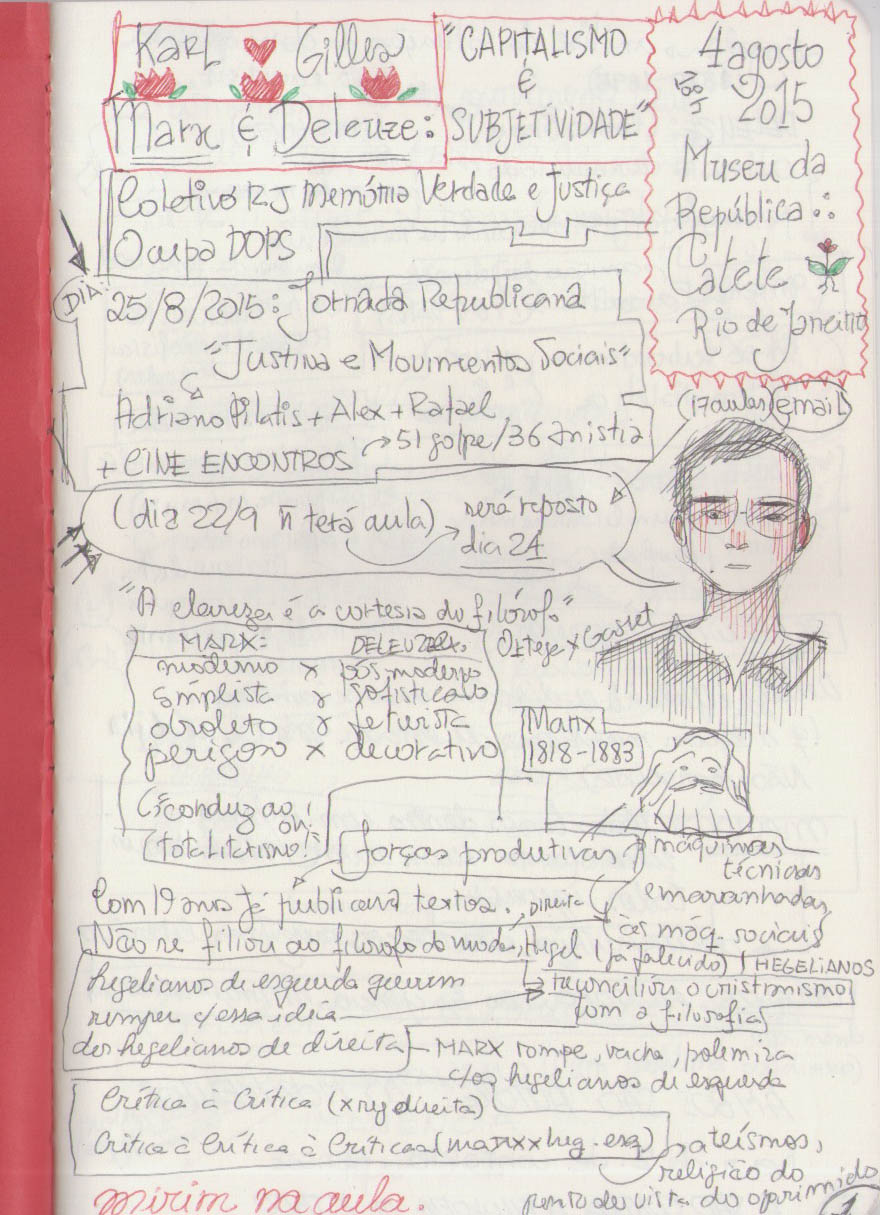 Karl ♥ Gilles
Marx & Deleuze:
"CAPITALISMO
&
SUBJETIVIDADE"
4 agosto
2015
Museu da
República ∴
Catete
Rio de Janeiro
Coletivo RJ Memória Verdade e Justiça
Ocupa DOPS
DIA:
25/8/2015: Jornada Republicana
"Justina e Movimentos Sociais"
Adriano Pilatis + Alex + Rafael
+ CINE ENCONTROS → 51 golpe/36 Anistia
(17 aulas) email
(dia 22/9 ñ terá aula) → será reposto
dia 24
"A clareza é a cortesia do filósofo"
Ortega y Gasset
MARX:
moderno x pós-moderno
simplista x sofisticado
obsoleto x futurista
perigoso x decorativo
conduz ao
totalitarismo!
oh!
Marx
1818-1883
forças produtivas
máquinas
técnicas
emaranhadas
às máq. sociais
Com 19 anos já publicava textos.
Direita
Não se filiou ao filósofo da moda, Hegel (já falecido) | HEGELIANOS
hegelianos de esquerda querem
reconciliou o cristianismo
romper c/essa ideia
com a filosofia
dos hegelianos de direita
MARX rompe, racha, polemiza
c/os hegelianos de esquerda
Crítica à Crítica (x direita)
Crítica à Crítica à Crítica (marx x heg. esq)
ateísmos,
religião do
ponto de vista do oprimido
mirim na aula.
1